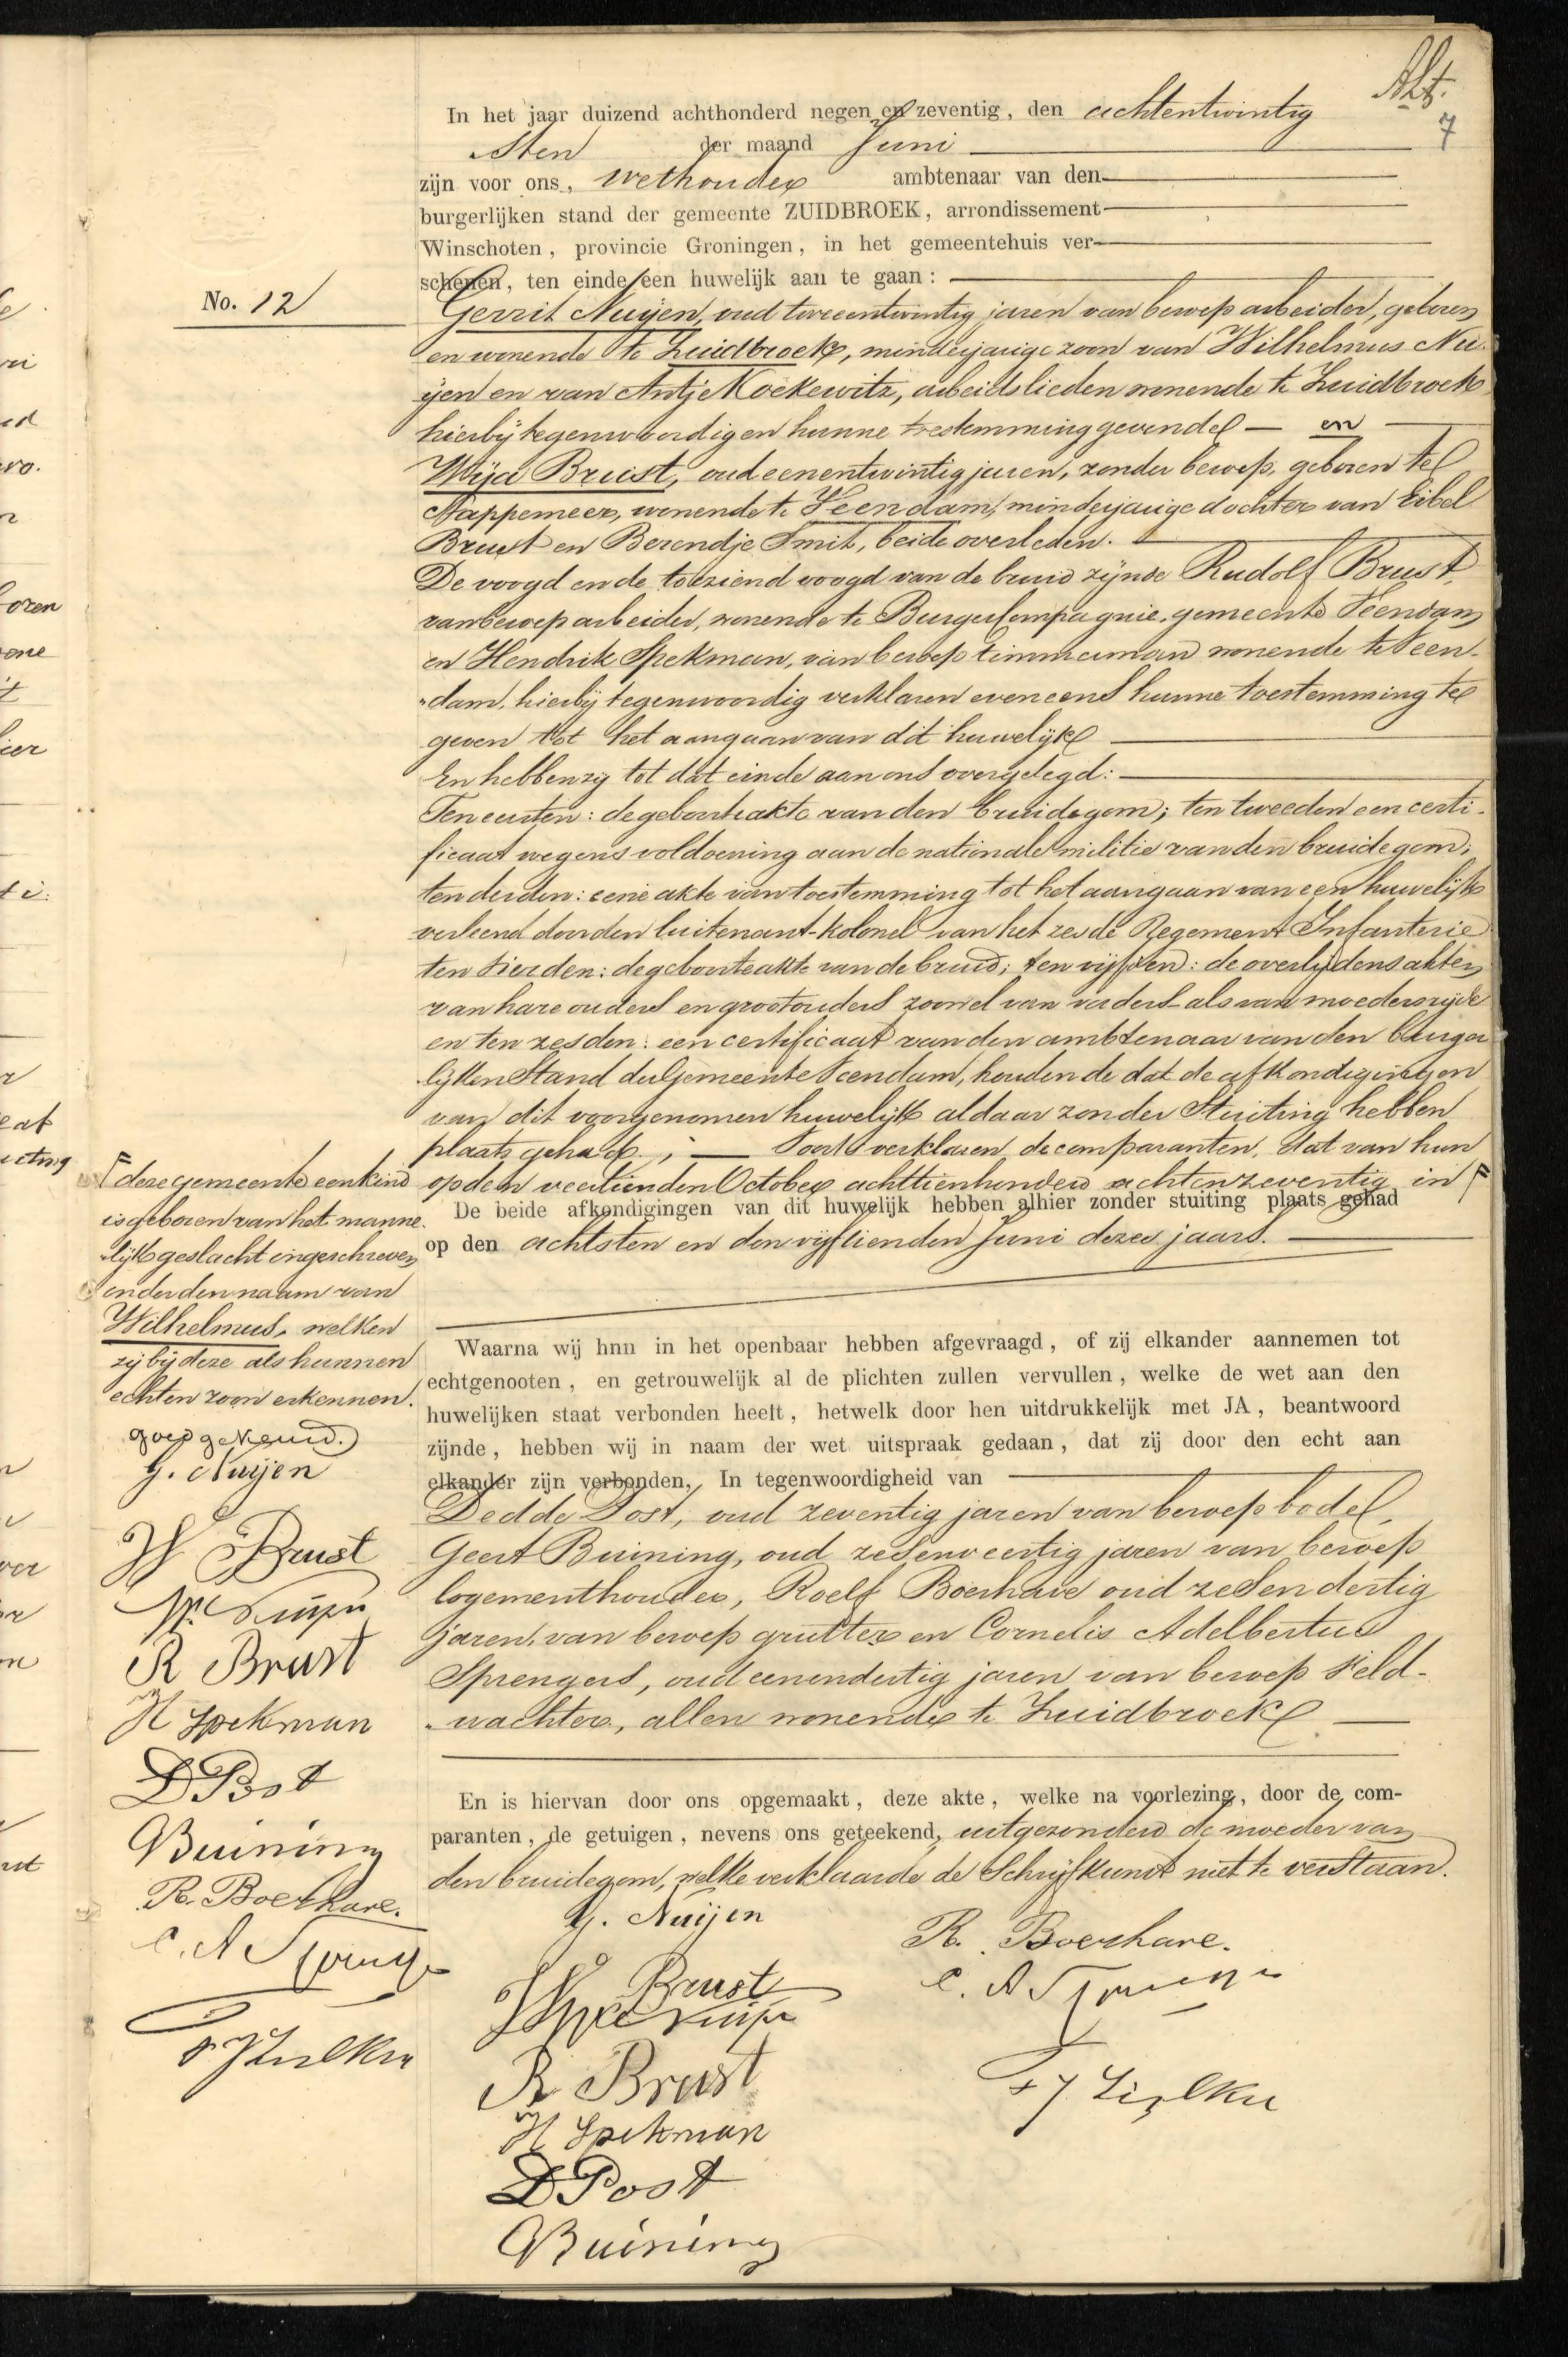 7
In het jaar duizend achthonderd negen en zeventig, den achtentwintig
sten der maand Juni
zijn voor ons, wethouder ambtenaar van den
burgerlijken stand der gemeente ZUIDBROEK, arrondissement
Winschoten, provincie Groningen, in het gemeentehuis ver-
schenen, ten einde een huwelijk aan te gaan:
No. 12
Gerrit Nuijen, oud tweeentwintig jaren van beroep arbeider, geboren
en wonende te Zuidbroek, minderjarige zoon van Wilhelmus Nu-
ijen en van Antje Koekewitz, arbeidslieden wonende te Zuidbroek
hierbij tegenwoordig en hunne toestemming gevende — en
Wija Brust, oud eenentwintig jaren, zonder beroep, geboren te
Sappemeer, wonende te Veendam, minderjarige dochter van Eibel
Brust en Berendje Smit, beide overleden.
De voogd en de toeziend voogd van de bruid zijnde Rudolf Brust,
van beroep arbeider, wonende te Burgercompagnie, gemeente Veendam
en Hendrik Spekman, van beroep timmerman wonende te Veen-
dam, hierbij tegenwoordig verklaren eveneens hunne toestemming te
geven tot het aangaan van dit huwelijk
En hebben zij tot dat einde aan ons overgelegd:
Ten eersten: de geboorteakte van den bruidegom; ten tweeden een certi-
ficaat wegens voldoening aan de nationale militie van den bruidegom;
ten derden: eene akte van toestemming tot het aangaan van een huwelijk
verleend door den luitenant-kolonel van het zesde Regement Infanterie
ten vierden: de geboorteakte van de bruid; ten vijfden: de overlijdensakten
van hare ouders en grootouders zoowel van vaders als van moederszijde
en ten zesden: een certificaat van den ambtenaar van den burger
lijken Stand der Gemeente Veendam, houdende dat de afkondigingen
van dit voorgenomen huwelijk aldaar zonder Stuiting hebben
plaats gehad; — Voorts verklaren de comparanten, dat van hun
op den veertienden October achttienhonderd achtenzeventig in F
De beide afkondigingen van dit huwelijk hebben alhier zonder stuiting plaats gehad
op den achtsten en den vijftienden Juni dezes jaars.
F deze gemeente een kind
is geboren van het manne-
lijk geslacht ingeschreven
onder den naam van
Wilhelmus, welken
zij bij deze als hunnen
echten zoon erkennen.
goedgekeurd.
G. Nuijen
W Brust
W. Nuijen
R Brust
H Spekman
D Post
GBuining
R. Boerhave.
Waarna wij hnn in het openbaar hebben afgevraagd, of zij elkander aannemen tot
echtgenooten, en getrouwelijk al de plichten zullen vervullen, welke de wet aan den
huwelijken staat verbonden heeft, hetwelk door hen uitdrukkelijk met JA, beantwoord
zijnde, hebben wij in naam der wet uitspraak gedaan, dat zij door den echt aan
elkander zijn verbonden, In tegenwoordigheid van
Dedde Post, oud zeventig jaren van beroep bode,
Geert Buining, oud zesenveertig jaren van beroep
logementhouder, Roelf Boerhave oud zesendertig
jaren, van beroep grutter en Cornelis Adelbertus
Sprengers, oud eenendertig jaren van beroep veld-
wachter, allen wonende te Zuidbroek
En is hiervan door ons opgemaakt, deze akte, welke na voorlezing, door de com-
paranten, de getuigen, nevens ons geteekend, uitgezonderd de moeder van
den bruidegom, welke verklaarde de Schrijfkunst niet te verstaan.
G. Nuijen
W Brust
W Nuijen
R Brust
H Spekman
D Post
GBuining
R. Boerhave.